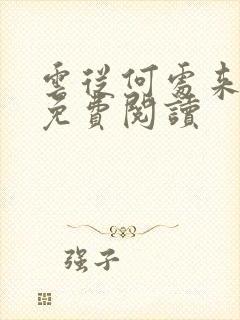 雲從何處來
免費閱讀
强子